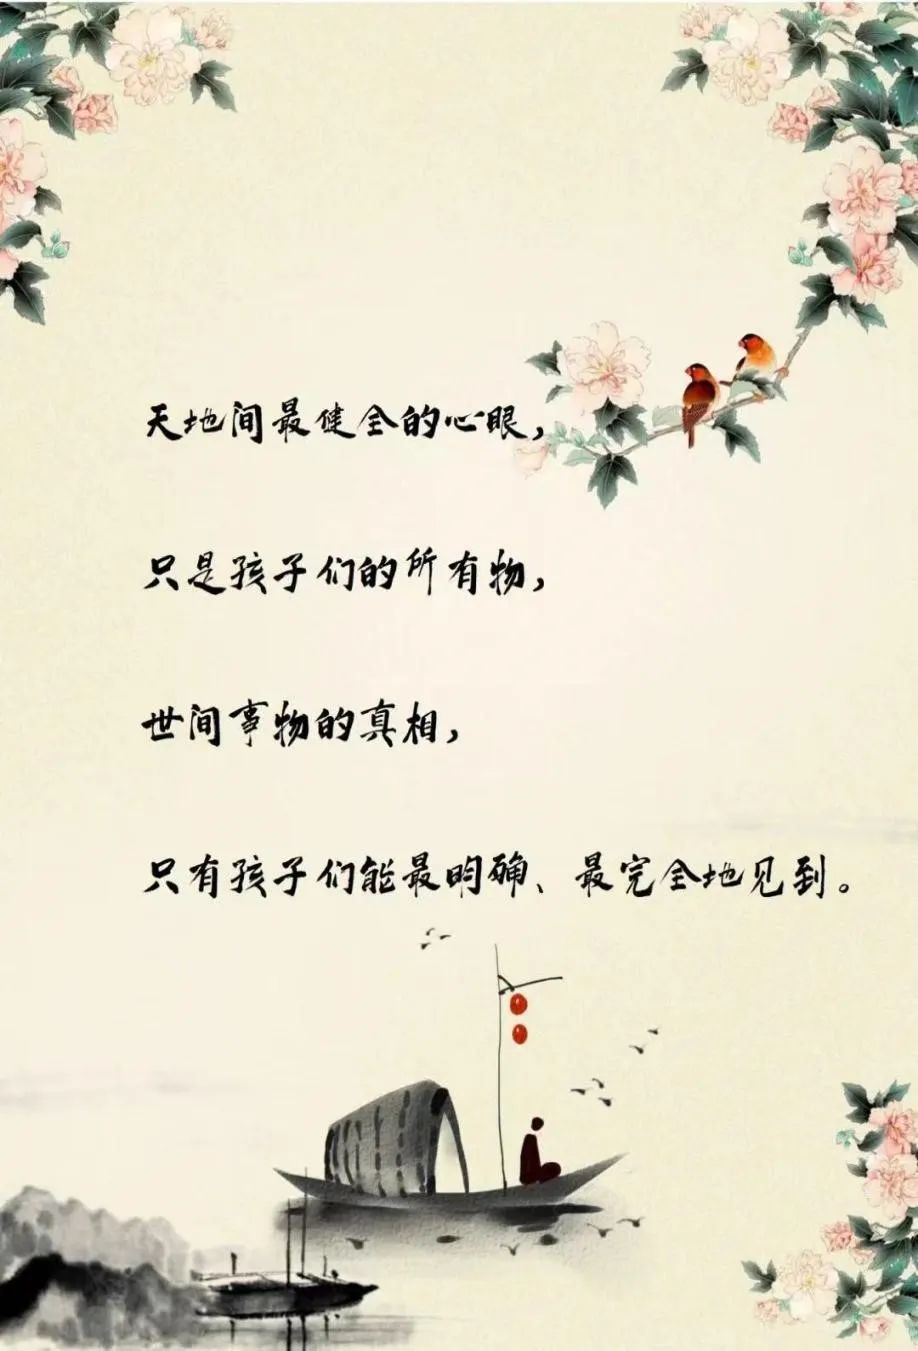 天地间最健全的心眼，
只是孩子们的所有物，
世间事物的真相，
只有孩子们能最明确、最完全地见到。